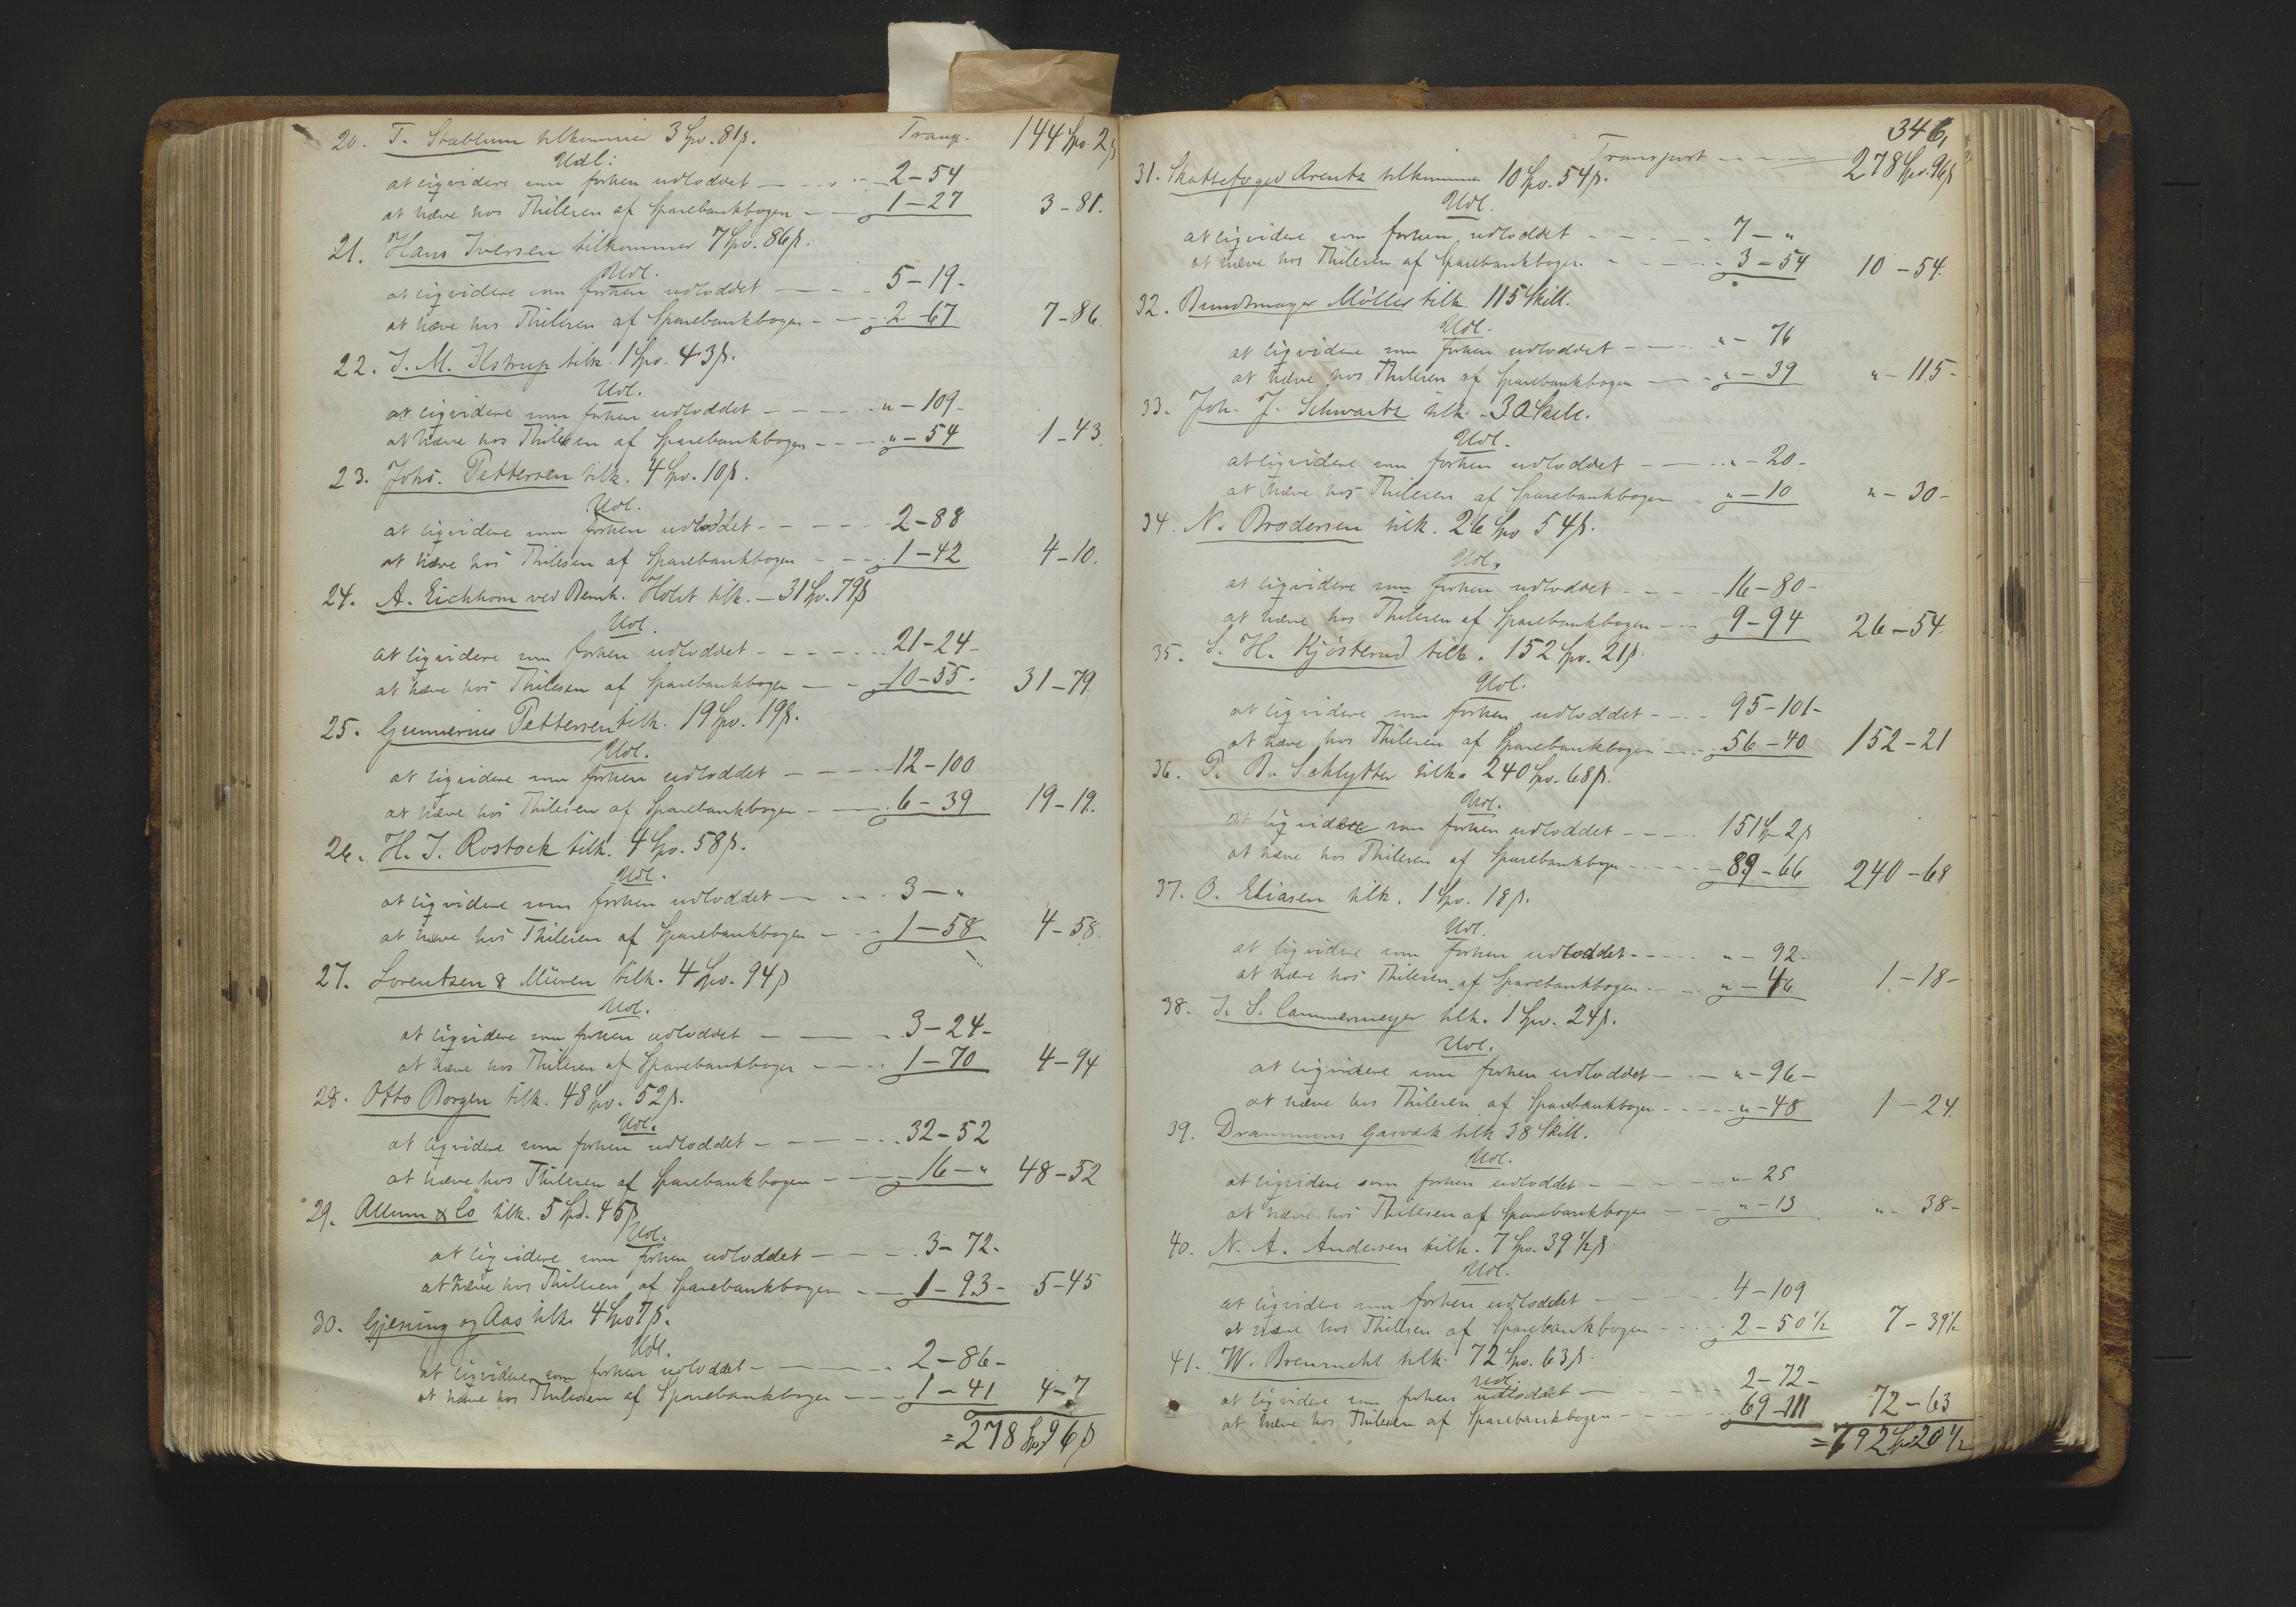 20. T. Stablum tilkommer 3 Spd. 81 ß. Transp. 144 Spd. 2 ß
Udl:
at liqvidere som forhen udloddet — 2 — 54
at hæve hos Thilesen af Sparebankbogen — 1 — 27 3 — 81.
21. Hans Iversen tilkommer 7 Spd. 86 ß.
Udl.
at liqvidere som forhen udloddet — 5 — 19 -
at hæve hos Thilesen af Sparebankbogen — 2 — 67 7 — 86.
22. J. M. Ilstrup tilk. 1 Spd. 43 ß.
Udl.
at liqvidere som forhen udloddet — " — 109 -
at hæve hos Thilesen af Sparebankbogen — " — 54 1 — 43.
23. Johs. Pettersen tilk. 4 Spd. 10 ß.
Udl.
at liqvidere som forhen udloddet — 2 — 88
at hæve hos Thilesen af Sparebankbogen — 1 — 42 4 — 10.
24. A. Eichhorn ved Bernh. Holst tilk. — 31 Spd. 79 ß
Udl.
at liqvidere som forhen udloddet — 21 — 24 -
at hæve hos Thilesen af Sparebankbogen — 10 — 55 - 31 — 79.
25. Gunnerius Pettersen tilk. 19 Spd. 19 ß.
Udl.
at liqvidere som forhen udloddet — 12 — 100
at hæve hos Thilesen af Sparebankbogen — 6 — 39 19 — 19.
26. H. J. Rostock tilk. 4 Spd. 58 ß.
Udl.
at liqvidere som forhen udloddet — 3 — "
at hæve hos Thilesen af Sparebankbogen — 1 — 58 4 — 58.
27. Lorentzen & Müren tilk. 4 Spd. 94 ß
Udl.
at liqvidere som forhen udloddet — 3 — 24 -
at hæve hos Thilesen af Sparebankbogen — 1 — 70 4 — 94
28. Otto Borgen tilk. 48 Spd. 52 ß.
Udl.
at liqvidere som forhen udloddet — 32 — 52
at hæve hos Thilesen af Sparebankbogen — 16 — " 48 — 52
29. Allum & Co tilk. 5 Spd. 45 ß
Udl.
at liqvidere som forhen udloddet — 3 — 72 -
at hæve hos Thilesen af Sparebankbogen — 1 — 93 - 5 — 45
30. Gjesing og Aas tilk. 4 Spd 7 ß.
Udl.
at liqvidere som forhen udloddet — 2 — 86 -
at hæve hos Thilesen af Sparebankbogen — 1 — 41 4 — 7
= 278 Spd. 96 ß
346,
Transport — 278 Spd. 96 ß
31. Skattefoged Arentz tilkommer 10 Spd. 54 ß.
Udl.
at liqvidere som forhen udloddet — 7 — "
at hæve hos Thilesen af Sparebankbogen — 3 — 54 10 — 54.
32. Bundtmager Møller tilk. 115 Skill.
Udl.
at liqvidere som forhen udloddet — " — 76
at hæve hos Thilesen af Sparebankbogen — " — 39 " — 115 -
33. Joh. J. Schwartz tilk. - 30 Skill.
Udl.
at liqvidere som forhen udloddet — " — 20 -
at hæve hos Thilesen af Sparebankbogen — " — 10 " — 30 -
34. N. Brodersen tilk. 26 Spd 54 ß.
Udl.
at liqvidere som forhen udloddet — 16 — 80 -
at hæve hos Thilesen af Sparebankbogen — 9 — 94 26 — 54.
35. S. H. Kjøsterud tilk. 152 Spd. 21 ß.
Udl.
at liqvidere som forhen udloddet — 95 — 101 -
at hæve hos Thilesen af Sparebankbogen — 56 — 40 152 — 21
36. P. B. Schlytter tilk. 240 Spd. 68 ß.
Udl.
at liqvidere som forhen udloddet — 151 Sp 2 ß
at hæve hos Thilesen af Sparebankbogen — 89 — 66 240 — 68
37. O. Eliasen tilk. 1 Spd. 18 ß.
Udl.
at liqvidere som forhen udloddet — " — 92 -
at hæve hos Thilesen af Sparebankbogen — " — 46 1 — 18 -
38. J. S. Cammermeyer tilk. 1 Spd. 24 ß.
Udl.
at liqvidere som forhen udloddet — " — 96 -
at hæve hos Thilesen af Sparebankbogen — " — 48 1 — 24.
39. Drammens Gasværk tilk 38 Skill.
Udl.
at liqvidere som forhen udloddet — " — 25
at hæve hos Thilesen af Sparebankbogen — " — 13 " — 38 -
40. N. A. Andersen tilk. 7 Spd. 39 ½ ß.
Udl.
at liqvidere som forhen udloddet — 4 — 109
at hæve hos Thilesen af Sparebankbogen — 2 — 50 ½ 7 — 39 ½
41. W. Brenmehl tilk. 72 Spd. 63 ß.
Udl.
at liqvidere som forhen udloddet — 2 — 72 -
at hæve hos Thilesen af Sparebankbogen — 69 — 111 72 — 63
= 792 Spd 20 ½